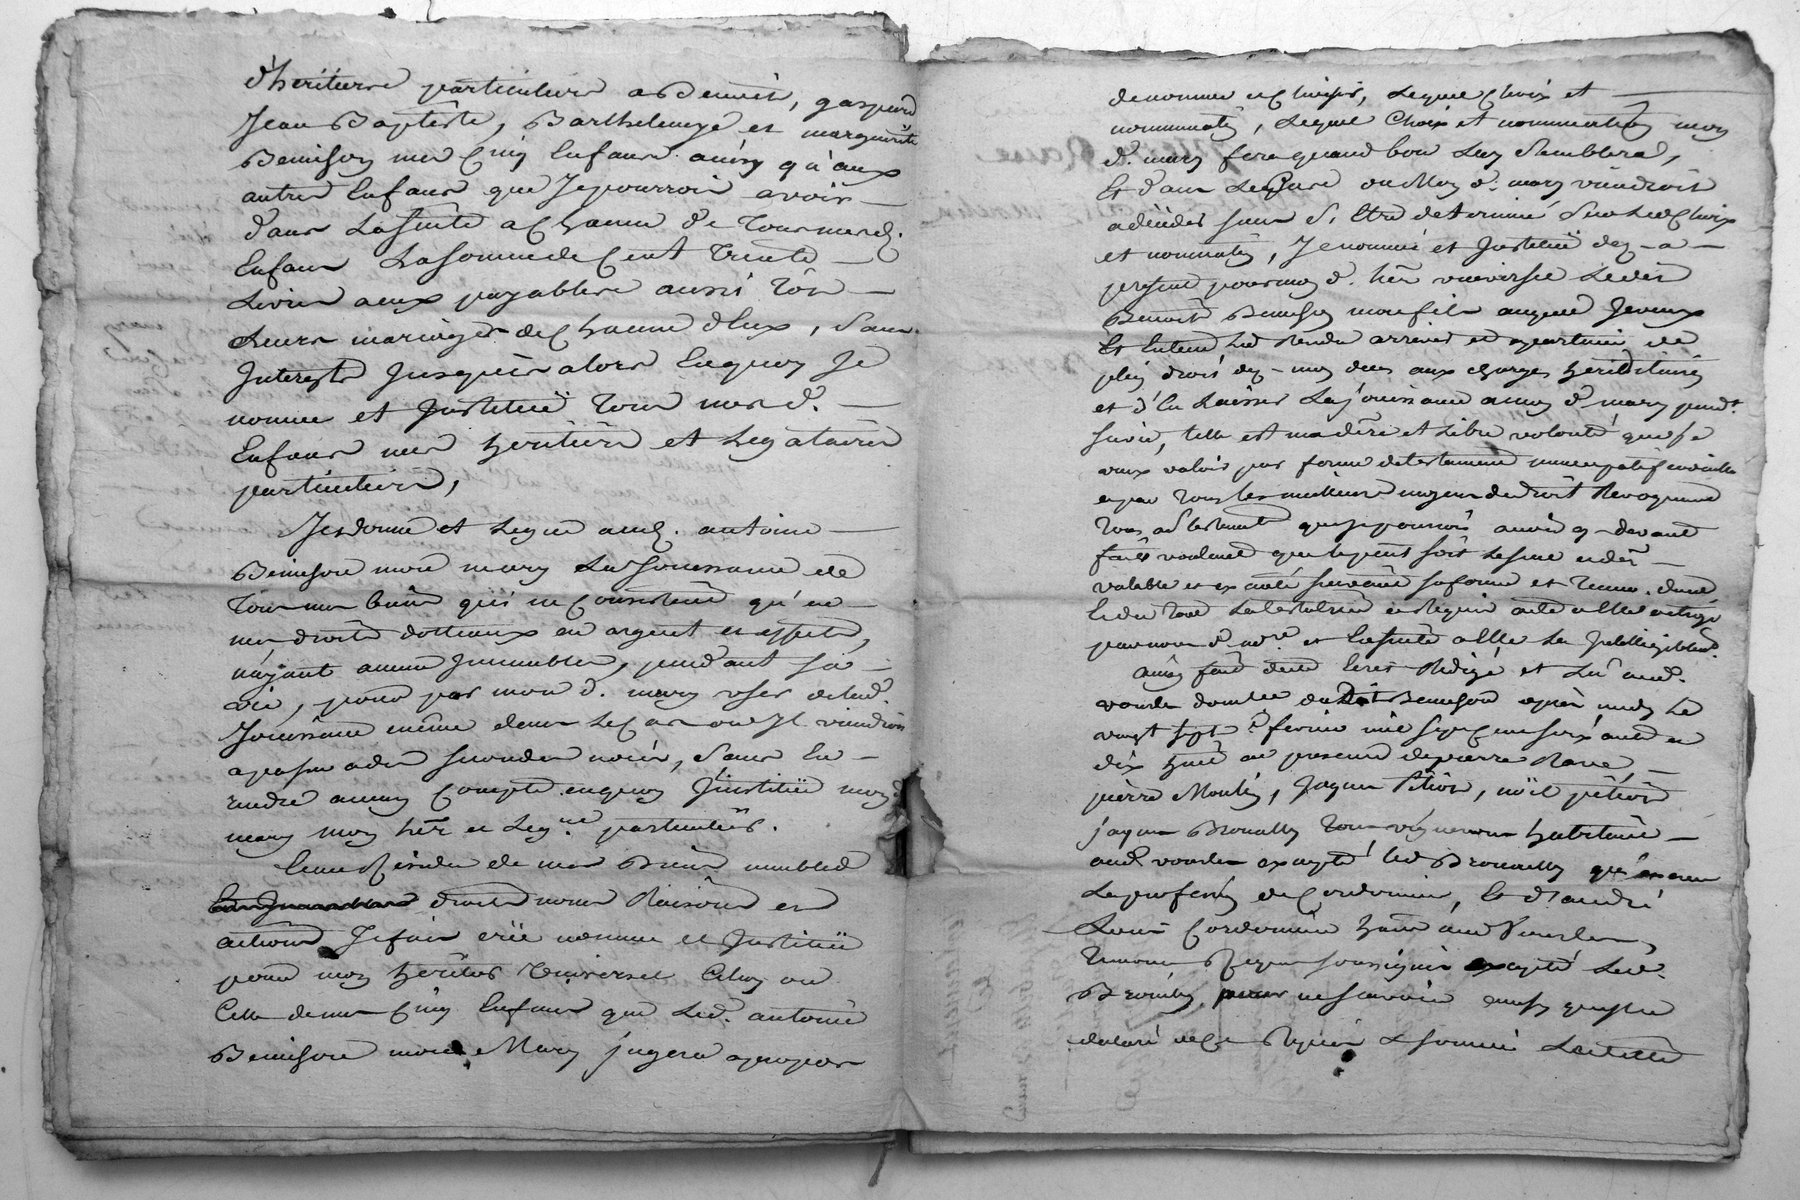 d'heritiere particuliere a Benoit, gaspard
Jean Baptiste, Barthelemye et marguerite
Benisson mes Cinq Enfans ainsy qu'aux
autres Enfans que Je pourrois avoir
dans La suitte a Chacun de Tous mesd.
Enfans La somme de Cent Trente
Livres aeux payables aussi Lors
Leurs mariages de Chacun d'Eux, Sans
Interests Jusques alors Enquoy Je
nomme et Justitue Tous mes d.
Enfans mes heritiers et Legataires
particuliers,
Je donne et Legue aud. antoine
Benisson mon mary La Jouissance de
Tous mes biens qui ne Consistent qu'en
mes droits dottaux en argent et effets,
n'ayant aucun Immeubles, pendant sa
vie, pour par mon d. mary user de lad.
Jouissance même dans Le Cas ou Il viendroit
a passer a des secondes noces, Sans En
rendre aucun Compte enquoy J'institue mon d
mary mon her et Leg.re particulier.
Et au Residu de mes Biens meubles
droits noms Raisons et
actions Je fais crée nomme et Justitue
pour mon heritier Universel Celuy ou
Celle de mes Cinq Enfans que Led. antoine
Benisson mon Mary jugera apropos
de nommer et Choisir, Lequel Choix et
nomination, Lequel Choix et nomination mon
d. mary fera quand bon Luy Semblera,
Et dans Le Cas ou Mon d. mary viendroit
a déceder sans S'Etre determiné Sur Led Choix
et nomination, Je nomme et Justitue dez-a-
present pour mon d. her universel Ledit
Benoit Benisson mon fils auquel Je veux
Et Entend Led Residu arriver et apartenir de
plein droit dez-mon deces aux charges héréditaires
et d'En Laisser La jouissance a mon d mary pend.t
sa vie, telle est ma dere et Libre volonté que je
veux valoir par forme de testament nuncupatif
et par Tous les meilleurs moyens de droit Revoquant
Tous autres testaments que je pourrois avoir cy-devant
faits voulant que le present soit Le seul et der
valable et executé suivant sa forme et Teneur. dont
et du Tout La testatrice a requis acte a Elle octroyé
par nous d. no.re et Ensuite a Elle Lu Intelligiblem.t
Ainsy fait dicté Ecrit Redigé et Lu aud.
vourles domicile dudit Benisson après midy Le
vingt sept e fevrier mil sept Cent soixante et
dix huit en presence de pierre Rave,
pierre Moulin, Jaque Pition, noël pition
jaque Brouilly Tous vignerons habitants
aud vourles excepté led Brouilly qui exerce
La profession de Cordonnier, et d'andré
Louis Cordonnier hant aud Vourles,
Temoins Requis soussignés excepté Led.
Brouilly pour ne savoir ainsy qu'il a
declaré de ce Requis & sommé La testatrice